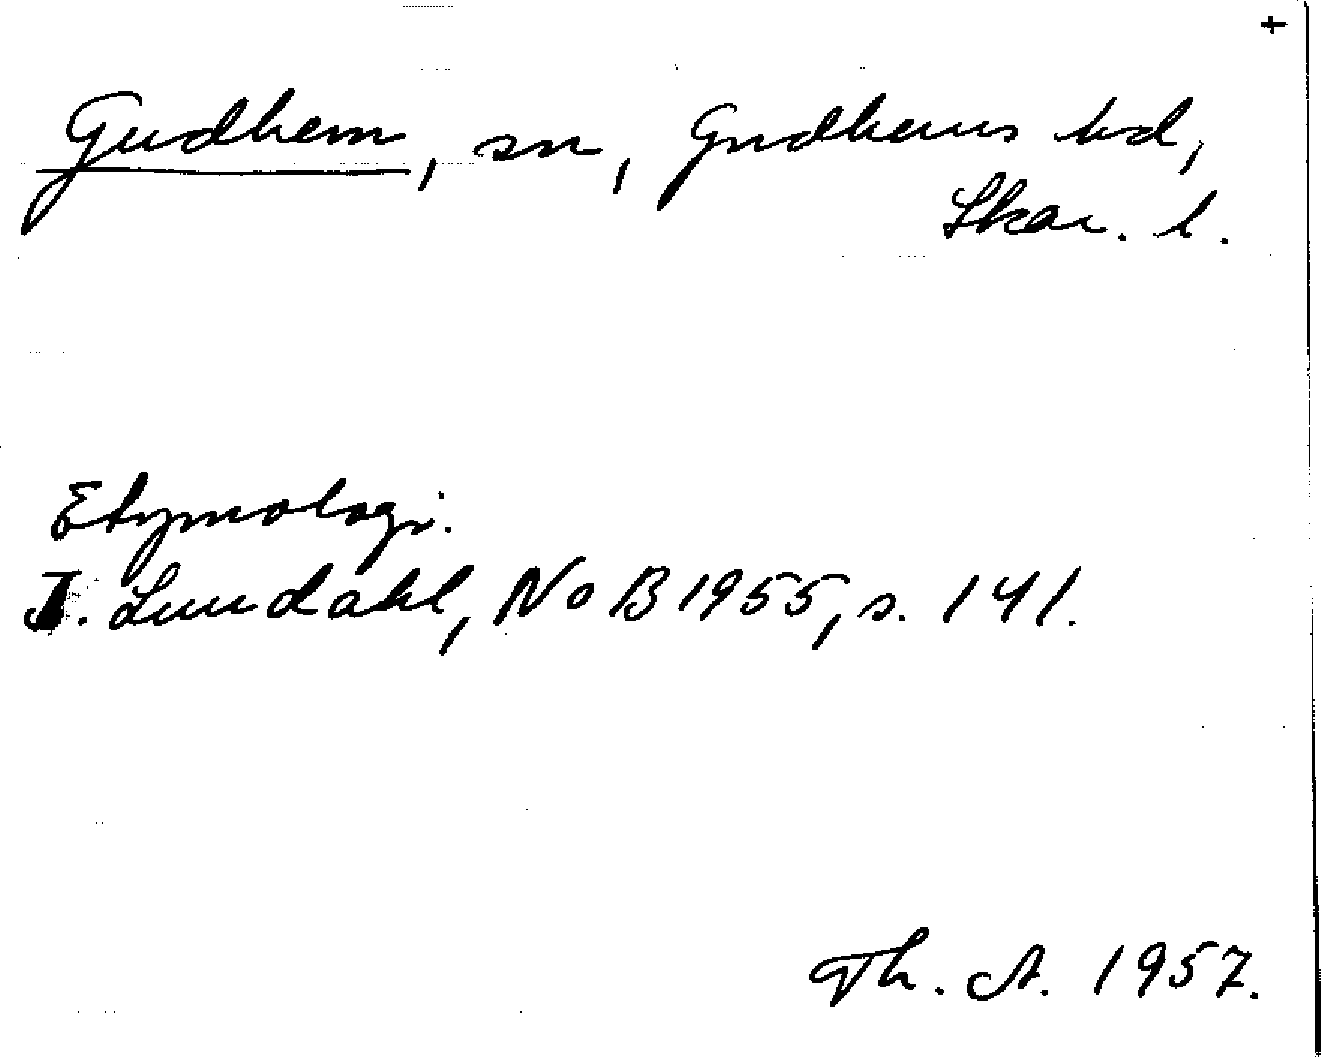 +
Gudhem, sn, Gudhems hd,
Skar. l.
Etymologi.
I. Lundahl, NoB 1955, s. 141.
Th. A. 1957.